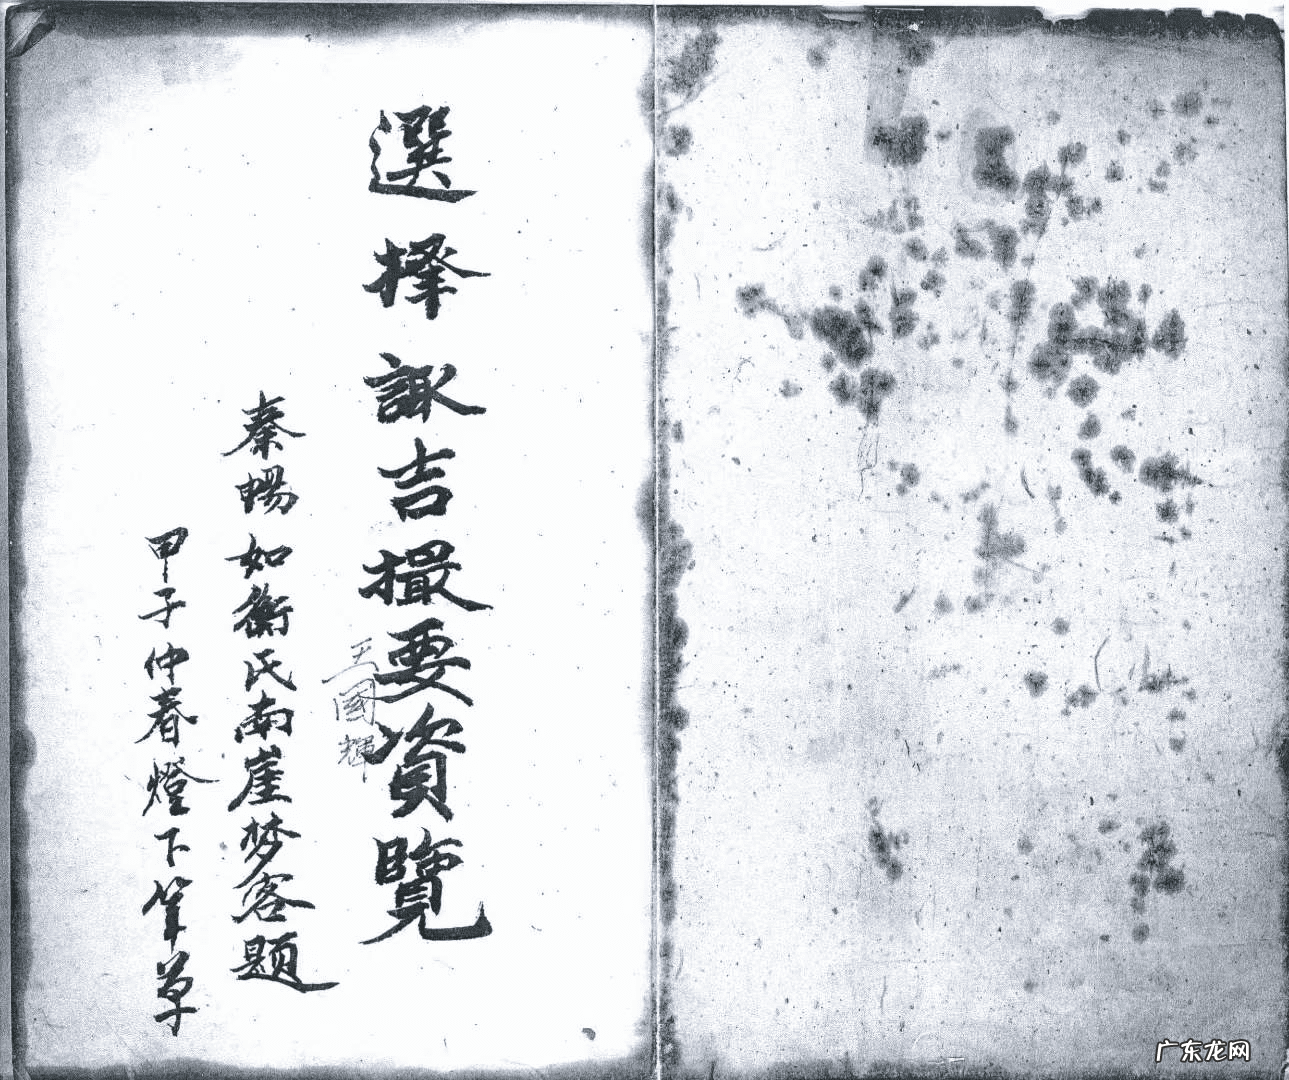 選擇諏吉撮要資覽
王國輝
秦暢如衡氏南崖梦客题
甲子仲春燈下筆草
广东龙网